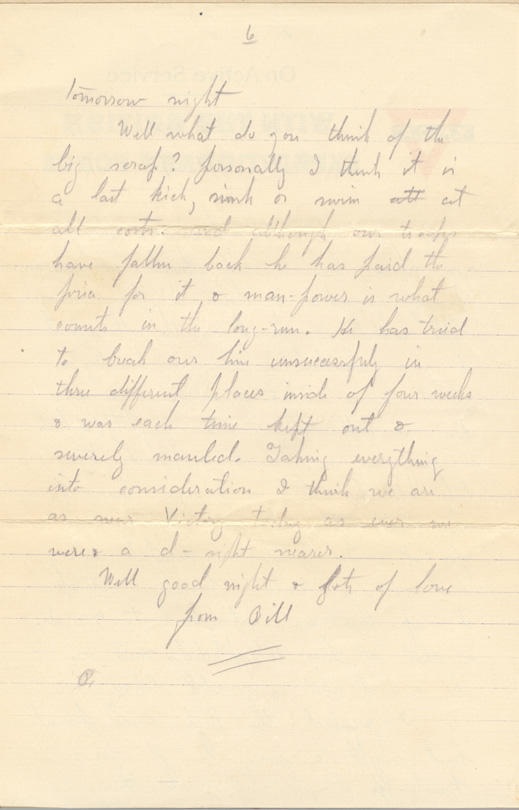 6
tomorrow night
Well what do you think of the
big scrap? personally I think it is
a last kick, sink or swim at
all costs. and although our troops
have fallen back he has paid the
price for it & man-power is what
counts in the long-run. He has tried
to break our line unsuccessfully in
three different places inside of four weeks
& was each time kept out &
severely mauled. Taking everything
into consideration I think we are
as near Victory today as ever we
were & a d- sight nearer.
Well good night & lots of love
from Bill